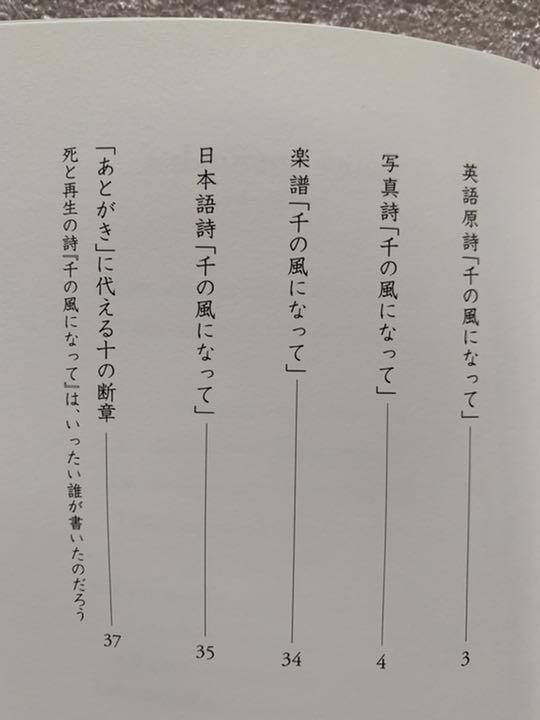 英語原詩「千の風になって」 3
写真詩「千の風になって」 4
楽譜「千の風になって」 34
日本語詩「千の風になって」 35
「あとがき」に代える十の断章 37
死と再生の詩『千の風になって』は、いったい誰が書いたのだろう